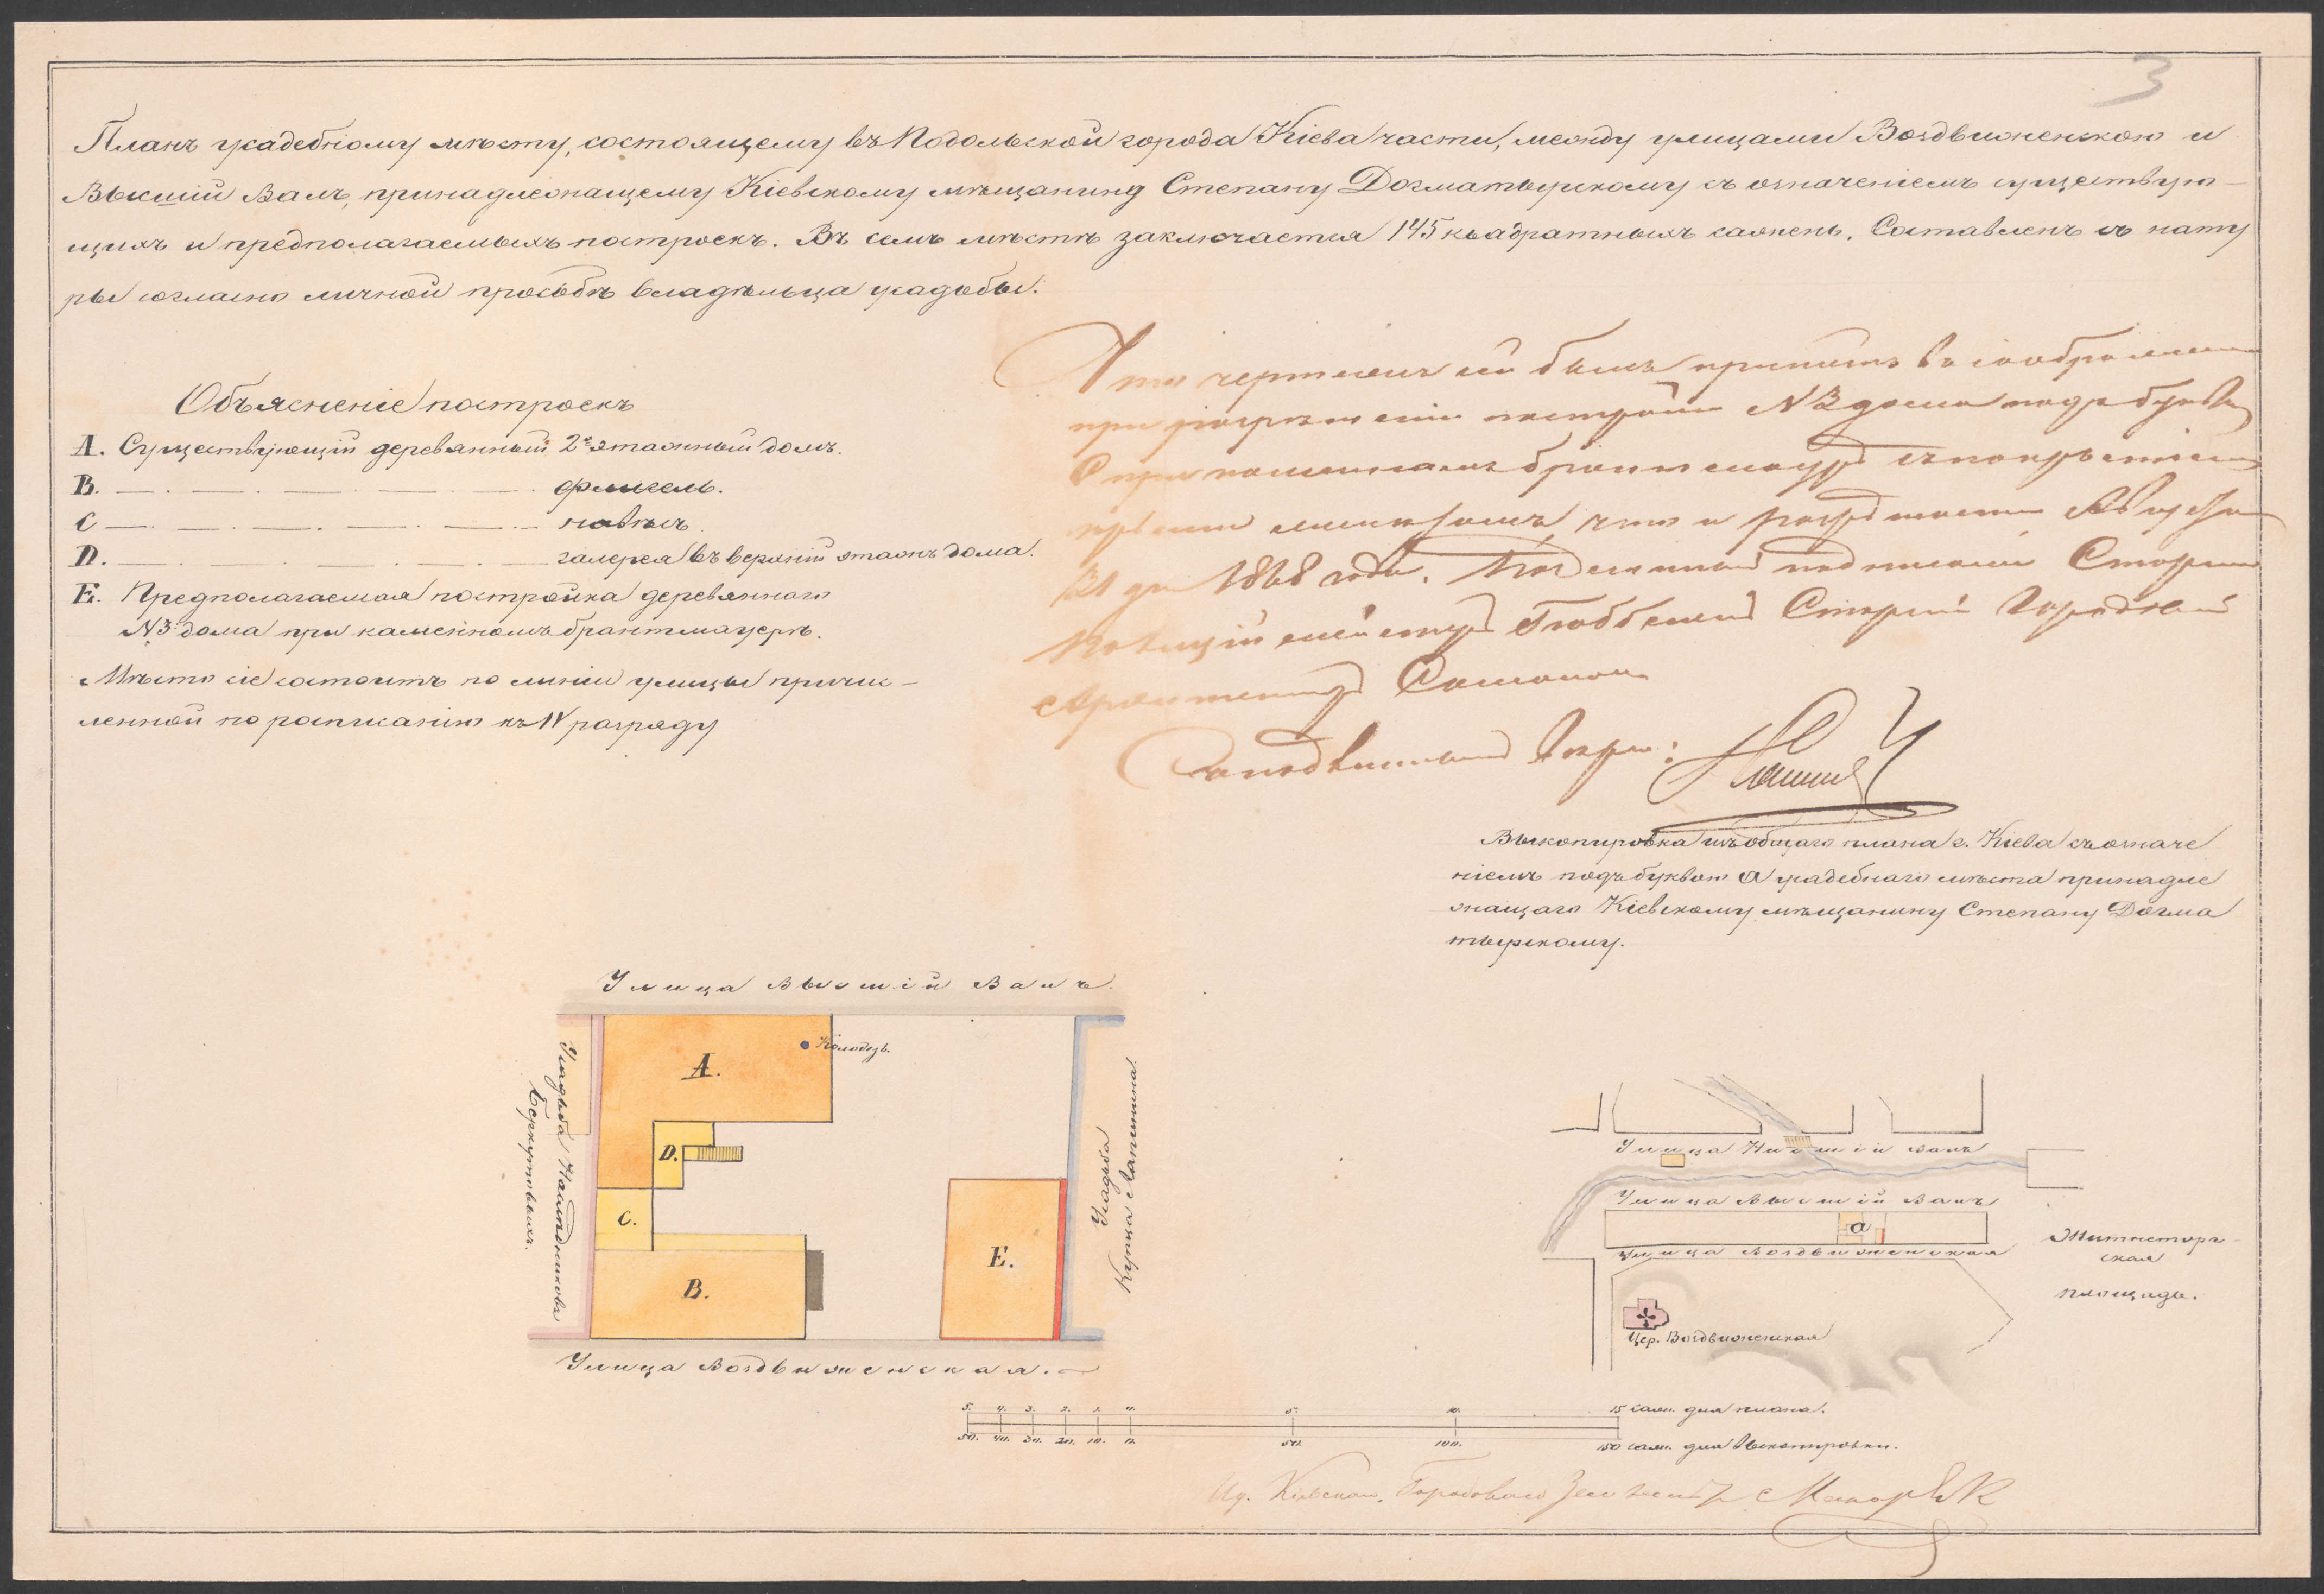 3
Планъ усадебному мѣсту, состоящему въ Подольской города Кіева части, между улицами Воздвиженскою и
Высшій Валъ, принадлежащему Кіевскому мѣщанину Степану Догматырскому съ означеніемъ существую-
щихъ и предполагаемыхъ построекъ. Въ семъ мѣстѣ заключается 145 квадратныхъ сажень. Составленъ съ нату
ры согласно личной просьбѣ владѣльца усадьбы.
Объясненіе построекъ
A. Существующій деревянный 2хъ этажный домъ.
B. — . — . — . — . — флигель.
C — . — . — . — . — навѣсъ.
D. — . — . — . — . — галерея въ верхній этажъ дома.
E. Предполагаемая постройка деревяннаго
№3 дома при каменномъ брантмауерѣ.
Мѣсто сіе состоитъ по линіи улицы причис-
ленной по росписанію къ IV разряду
что чертежъ сей былъ принятъ въ соображеніе
при разрѣшеніи постройки №3 дома подъ буквою
E при каменномъ брантмауерѣ съ покрытіемъ
крыши желѣзомъ, что и Августа
21 дня 1868 года. Подлинный подписали Старшій
Полиціймейстеръ Старшій Городской
Архитекторъ
Выкопировка изъ общаго плана г. Кіева съ означе
ніемъ подъ буквою а усадебнаго мѣста принадле
жащаго Кіевскому мѣщанину Степану Догма
тырскому.
Улица Высшій Валъ.
A.
Колодезь.
D.
C.
B.
E.
Усадьба Наслѣдниковъ
Беркутовыхъ.
Усадьба
Купца Лапшина
Улица Воздвиженская.
Улица Нижній Валъ
Улица Высшій Валъ
а
Улица Воздвиженская
Житнеторж-
ская
площадь.
Цер. Воздвиженская
5. 4. 3. 2. 1. 0. 5. 10. 15 саж. для плана.
50. 40. 30. 20. 10. 0. 50. 100. 150 саж. для выкопировки.
Ид. Кіевскаго Городоваго Землемѣра